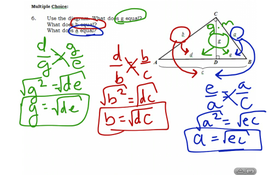 Multiple Choice:
6. Use the diagram. What does g equal?
What does b equal?
What does a equal?
d/g g/e
√g² = √de
g = √de
d/b b/c
√b² = √dc
b = √dc
e/a a/c
√a² = √ec
a = √ec
C
A
D
B
b
g
a
d
e
c